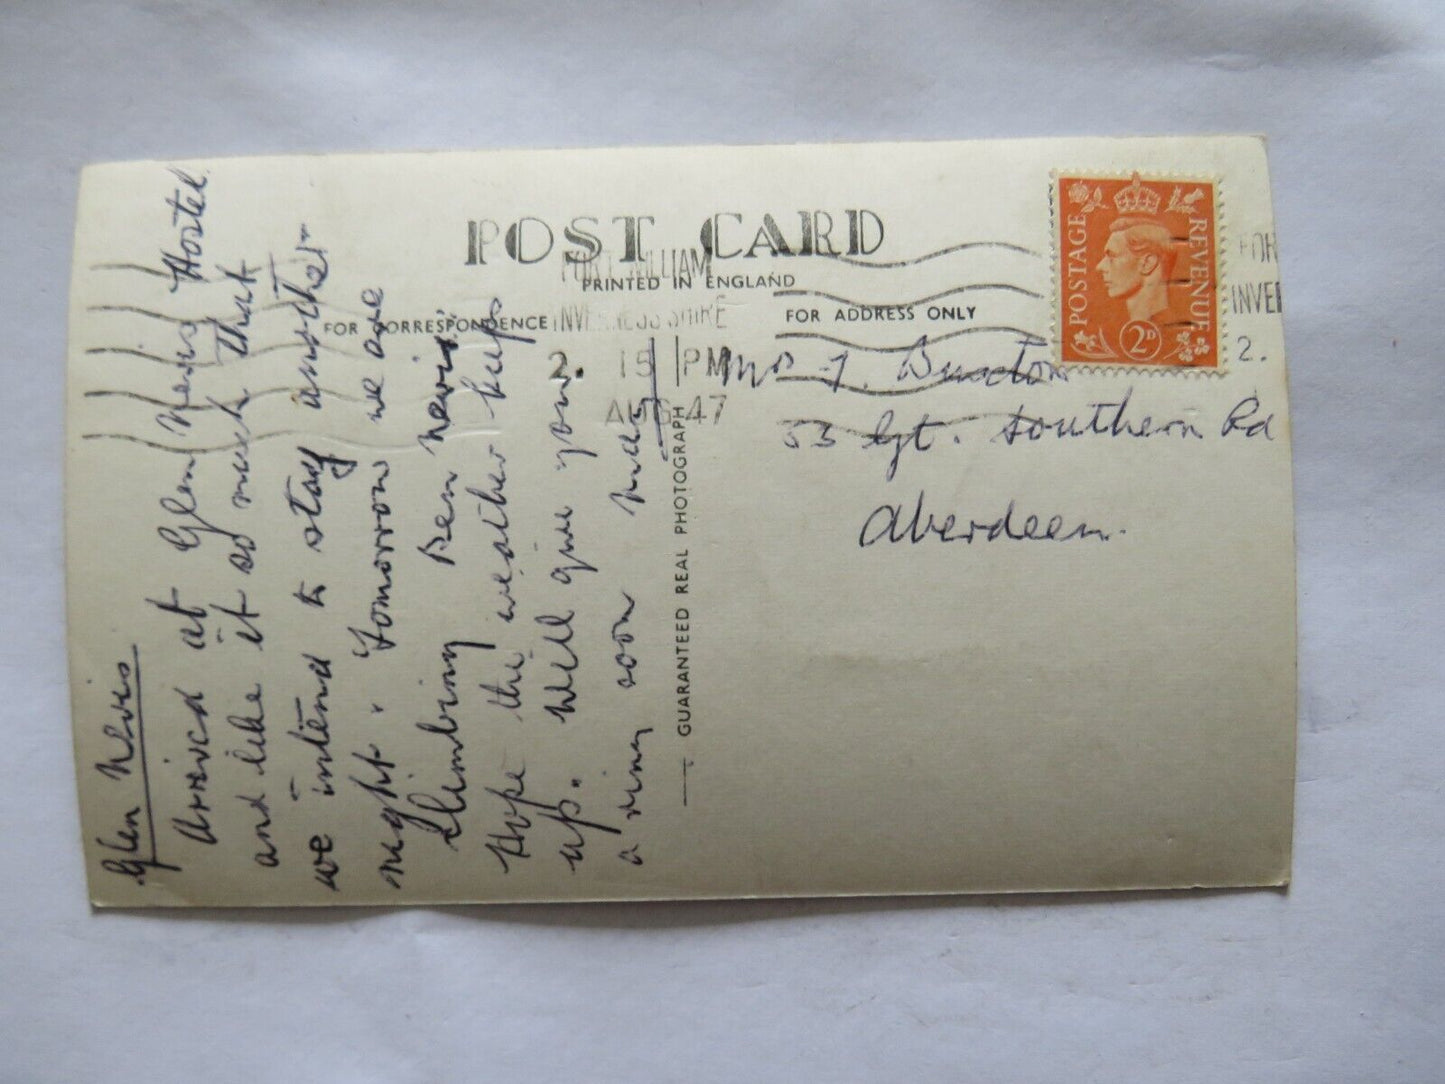 POST CARD
PRINTED IN ENGLAND
FOR CORRESPONDENCE
FOR ADDRESS ONLY
GUARANTEED REAL PHOTOGRAPH
FORT WILLIAM
INVERNESS SHIRE
2. 15 PM
AUG 47
POSTAGE
REVENUE
2D
FOR
INVER
2.
Glen Nevis
Arrived at Glen Nevis Hostel
and like it so much that
we intend to stay another
night. Tomorrow we are
climbing Ben Nevis.
Hope the weather keeps
up. Will give you
a ring soon May
53 Gt. Southern Rd
Aberdeen.